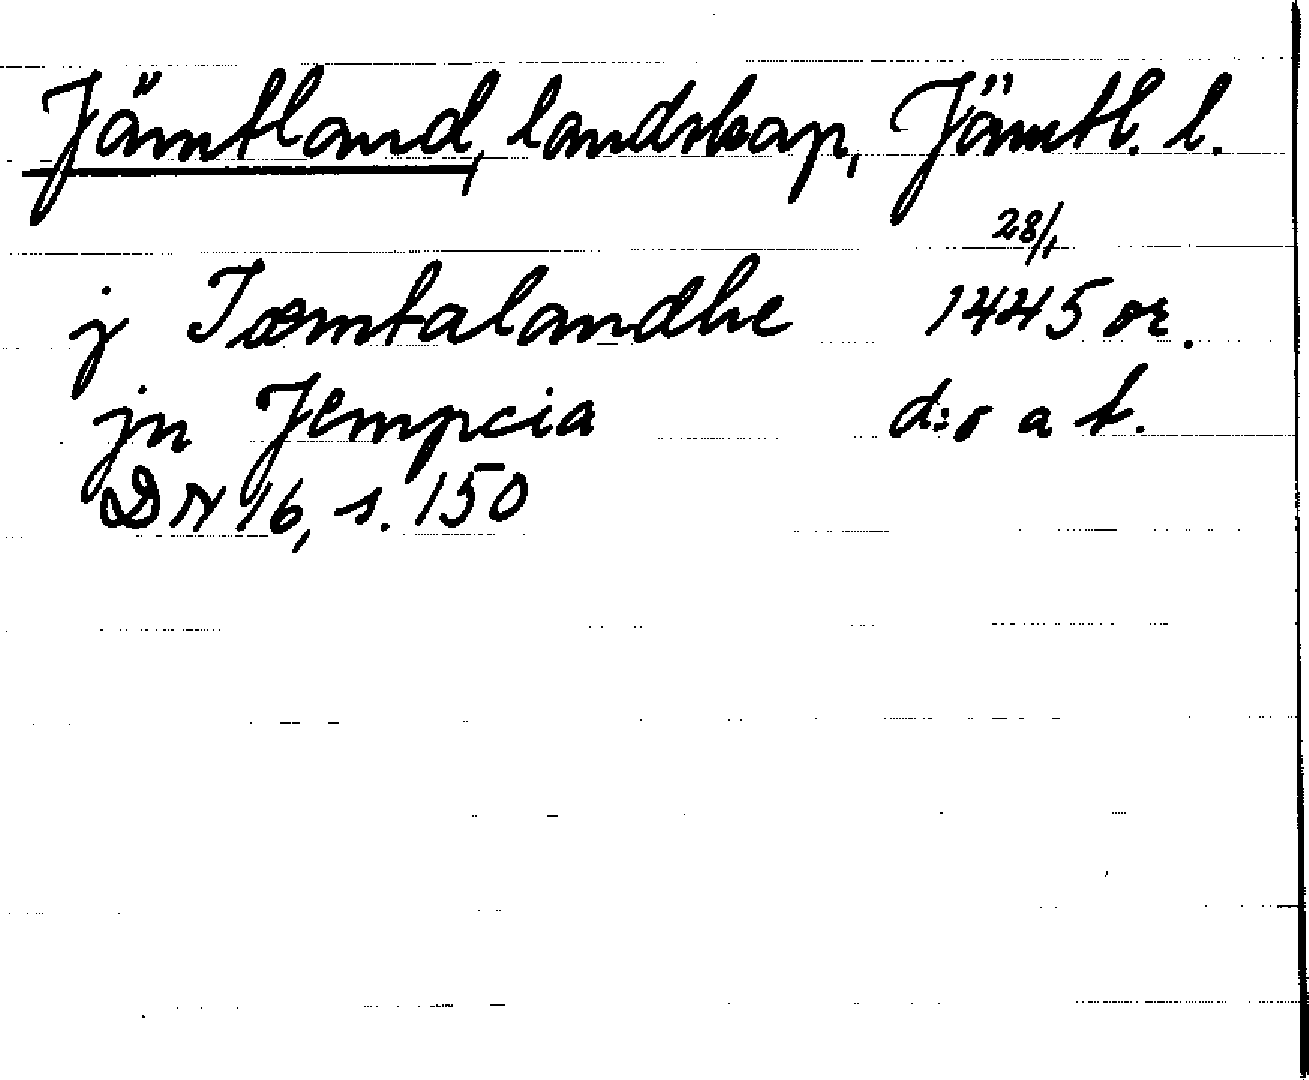 Jämtland, landskap, Jämtl. l.
28/1
j Iæmtalandhe 1445 or.
jn Jempcia d:o a t.
DN 16, s. 150